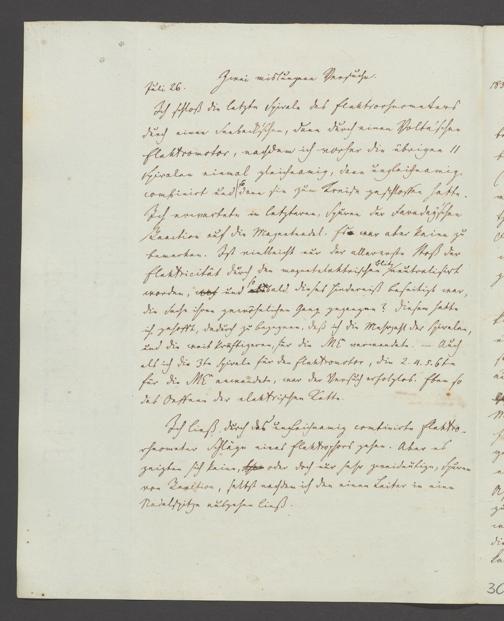 Zwei misslungene Versuche.
Juli 26.
Ich schloß die letzte Spirale des Elektrorheometers
durch einen Seebeckschen, dann durch einen Voltaschen
Elektromotor, nachdem ich vorher die übrigen 11
Spiralen einmal gleichnamig, dann ungleichnamig
combinirt und sie zum Kreise geschlossen hatte.
Ich erwartete in letzteren, Spuren der Faradayschen
Reaction auf die Magnetnadel. Es war aber keine zu
bemerken. Ist vielleicht nur der allererste Stoß der
Elektricität durch den magnetelektrischen Blitz neutralisirt
worden, und sobald dieses Hinderniß beseitigt war,
die Sache ihren gewöhnlichen Gang gegangen? Diesem hatte
ich gehofft, dadurch zu begegnen, daß ich die Mehrzahl der Spiralen,
und die weit kräftigeren, für die ME verwendete. — Auch
als ich die 3te Spirale für den Elektromotor, die 2. 4. 5. 6te
für die ME anwendete, war der Versuch erfolglos. Eben so
das Oeffnen der elektrischen Kette.
Ich ließ durch das ungleichnamig combinirte Elektro-
rheometer Schläge eines Elektrophors gehen. Aber es
zeigten sich keine, oder doch nur sehr zweideutige, Spuren
von Reaktion, selbst nachdem ich den einen Leiter in eine
Nadelspitze ausgehen ließ.
30